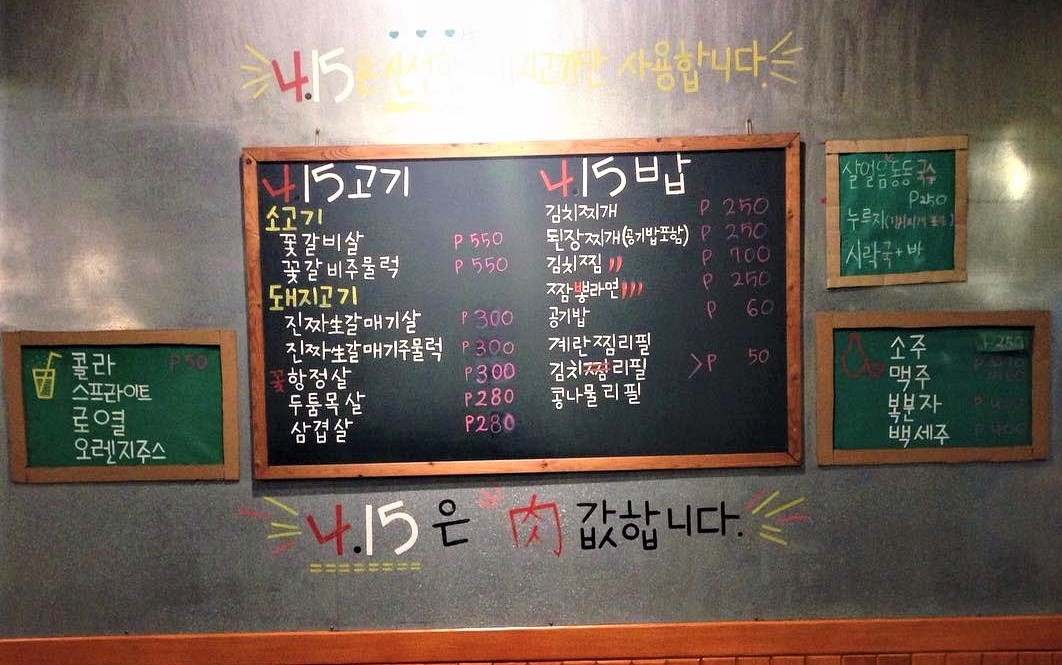 4.15은 신선한 돼지고기만 사용합니다.
4.15고기
소고기
꽃갈비살 P 550
꽃갈비주물럭 P 550
돼지고기
진짜生갈매기살 P 300
진짜生갈매기주물럭 P 300
꽃항정살 P 300
두툼목살 P 280
삼겹살 P 280
4.15밥
김치찌개 P 250
된장찌개(공기밥포함) P 250
김치찜 P 700
짬뽕라면 P 250
공기밥 P 60
계란찜리필
김치리필 > P 50
콩나물리필
살얼음동동국수
P250
누룽지
시락국+밥
콜라 P 50
스프라이트
로열
오렌지주스
소주 P 250
맥주
복분자
백세주
4.15은 肉값합니다.